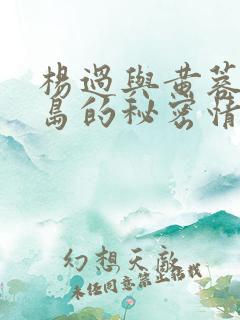 楊過與黃蓉
島的秘密情
幻想天敵
未任同意禁止传载